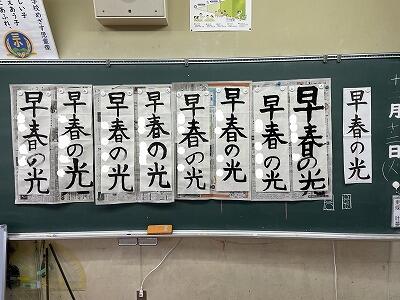 早春の光
早春の光
早春の光
早春の光
早春の光
早春の光
早春の光
早春の光
早春の光